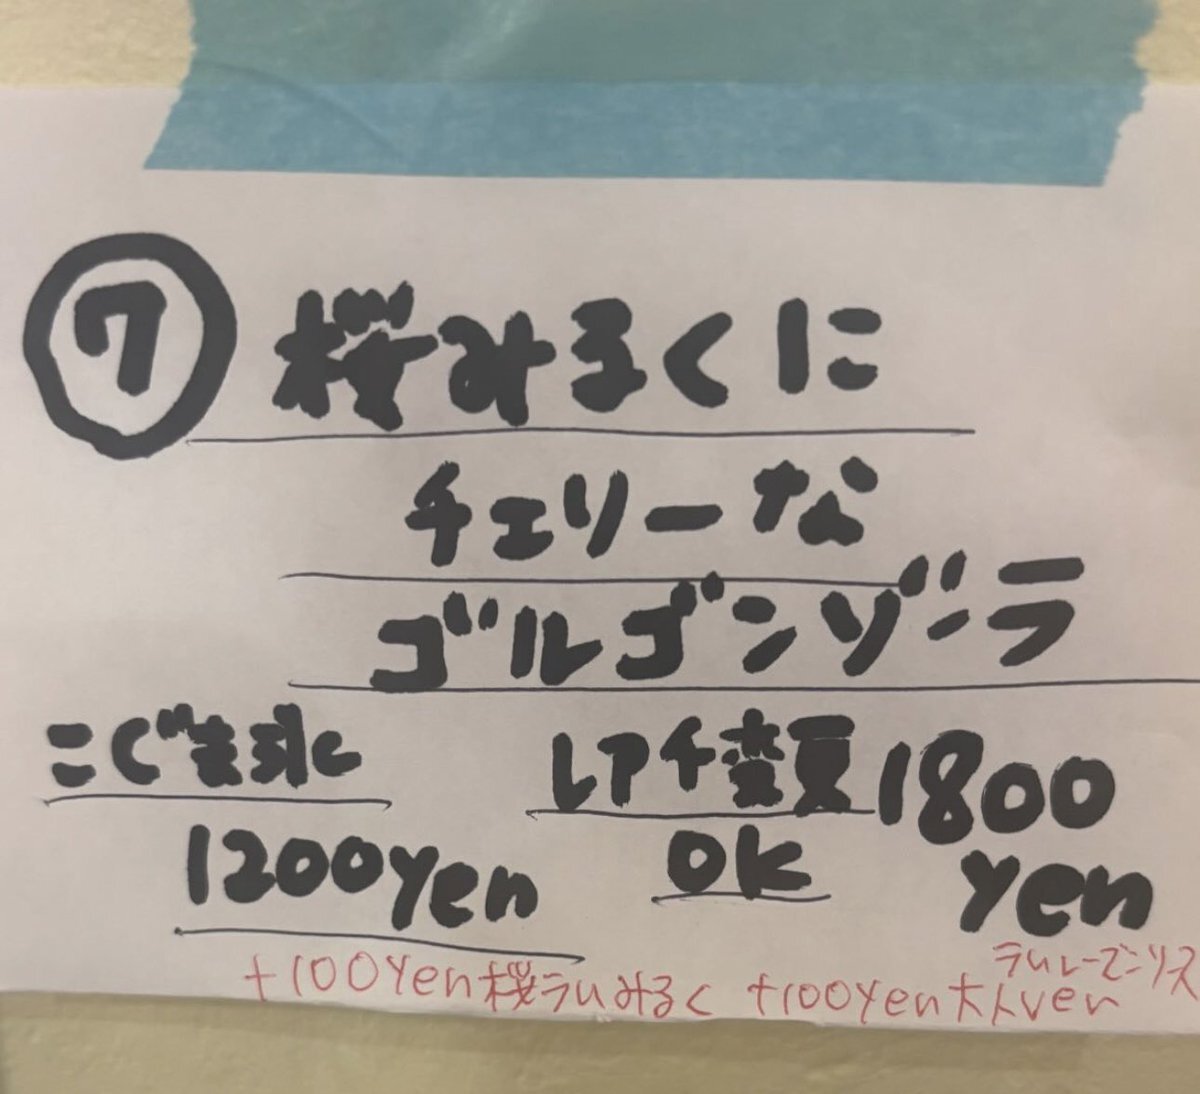 ⑦ 桜みるくに
チェリーな
ゴルゴンゾーラ
こぐま氷
1200yen
レアチ変更
OK
1800
yen
+100yen桜ラムみるく
+100yen大人ver
ラムレーズンソース